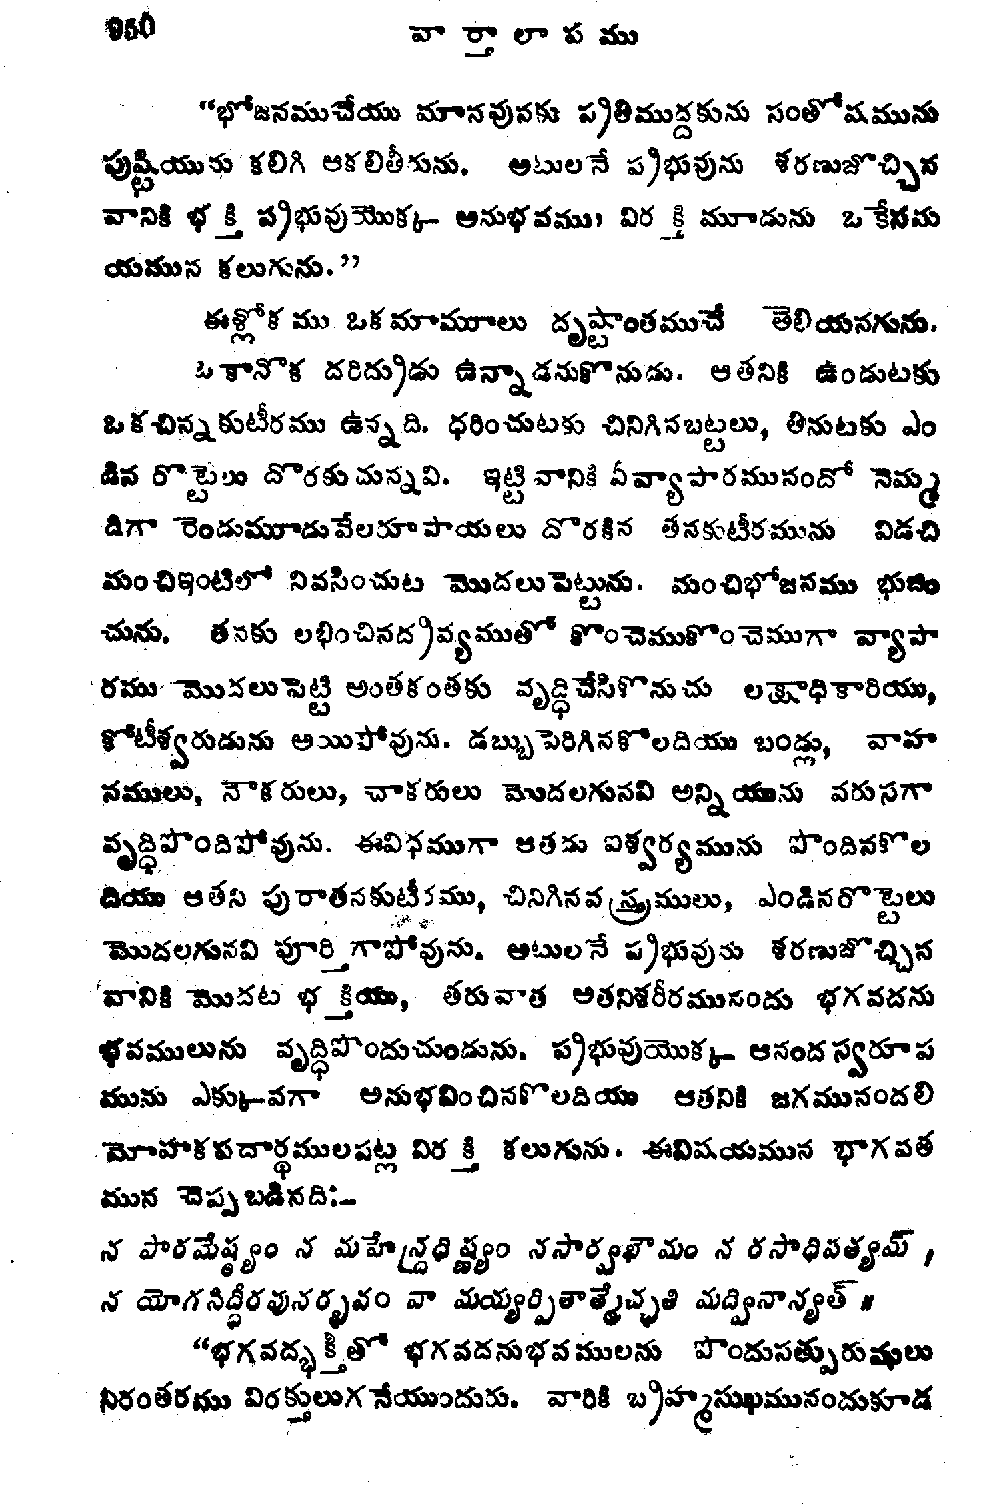 ౧౬౦ వార్తాలాపము
“భోజనముచేయు మానవునకు ప్రతిముద్దకును సంతోషమును
పుష్టియును కలిగి ఆకలితీరును. అటులనే ప్రభువును శరణుజొచ్చిన
వానికి భక్తి ప్రభువుయొక్క అనుభవము, విరక్తి మూడును ఒకేసమ
యమున కలుగును.”
ఈశ్లోకము ఒకమామూలు దృష్టాంతముచే తెలియనగును.
ఒకానొక దరిద్రుడు ఉన్నాడనుకొనుడు. ఆతనికి ఉండుటకు
ఒకచిన్నకుటీరము ఉన్నది. ధరించుటకు చినిగినబట్టలు, తినుటకు ఎం
డిన రొట్టెలు దొరకుచున్నవి. ఇట్టివానికి ఏవ్యాపారమునందో నెమ్మ
దిగా రెండుమూడువేలరూపాయలు దొరకిన తనకుటీరమును విడచి
మంచిఇంటిలో నివసించుట మొదలుపెట్టును. మంచిభోజనము భుజిం
చును. తనకు లభించినద్రవ్యముతో కొంచెముకొంచెముగా వ్యాపా
రము మొదలుపెట్టి అంతకంతకు వృద్ధిచేసికొనుచు లక్షాధికారియు,
కోటీశ్వరుడును అయిపోవును. డబ్బుపెరిగినకొలదియు బండ్లు, వాహ
నములు, నౌకరులు, చాకరులు మొదలగునవి అన్నియును వరుసగా
వృద్ధిపొందిపోవును. ఈవిధముగా ఆతడు ఐశ్వర్యమును పొందినకొల
దియు ఆతని పురాతనకుటీరము, చినిగినవస్త్రములు, ఎండినరొట్టెలు
మొదలగునవి పూర్తిగాపోవును. అటులనే ప్రభువును శరణుజొచ్చిన
వానికి మొదట భక్తియు, తరువాత ఆతనిశరీరమునందు భగవదను
భవములును వృద్ధిపొందుచుండును. ప్రభువుయొక్క ఆనందస్వరూప
మును ఎక్కువగా అనుభవించినకొలదియు ఆతనికి జగమునందలి
మోహకపదార్థములపట్ల విరక్తి కలుగును. ఈవిషయమున భాగవత
మున చెప్పబడినది:–
న పారమేష్ఠ్యం న మహేన్ద్రధిష్ణ్యం నసార్వభౌమం న రసాధిపత్యమ్ ,
న యోగసిద్ధీరపునర్భవం వా మయ్యర్పితాత్మేచ్ఛతి మద్వినాన్యత్ ॥
“భగవద్భక్తితో భగవదనుభవములను పొందుసత్పురుషులు
నిరంతరము విరక్తులుగనేయుందురు. వారికి బ్రహ్మసుఖమునందుకూడ